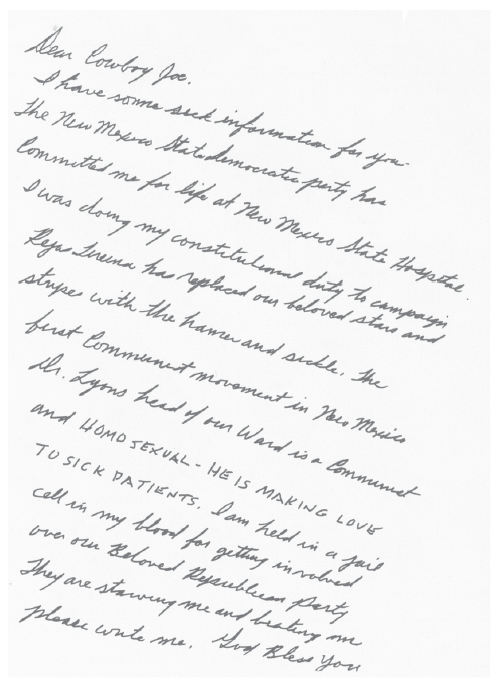 Dear Cowboy Joe.
I have some sick information for you.
The New Mexico State democratic party has
Committed me for life at New Mexico State Hospital.
I was doing my constitutional duty to campaign
Reyes has replaced our beloved stars and
stripes with the hamer and sickle. The
first Communist movement in New Mexico
Dr. Lyons head of our Ward is a Communist
and HOMOSEXUAL - HE IS MAKING LOVE
TO SICK PATIENTS. I am held in a jail
cell in my blood for getting involved
over our Beloved Republican Party
They are starving me and beating me
please write me. God Bless You